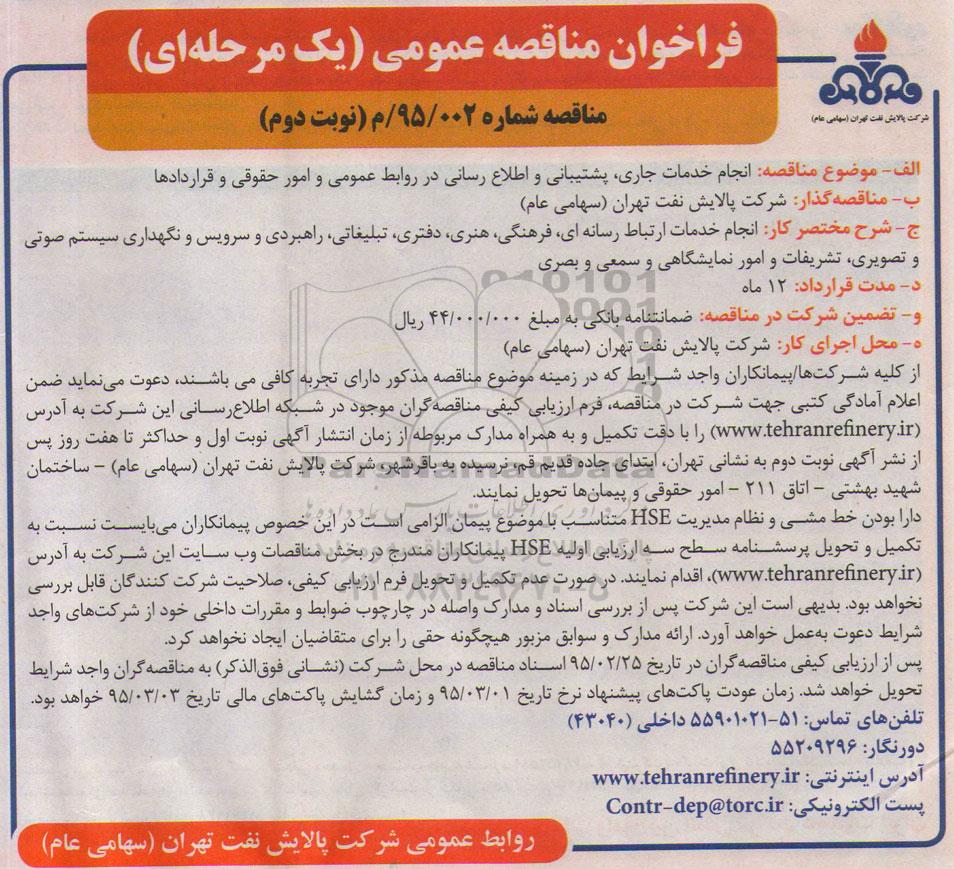 فراخوان مناقصه عمومی (یک مرحله‌ای)
مناقصه شماره ۹۵/۰۰۲/م (نوبت دوم)
شرکت پالایش نفت تهران (سهامی عام)
الف- موضوع مناقصه: انجام خدمات جاری، پشتیبانی و اطلاع رسانی در روابط عمومی و امور حقوقی و قراردادها
ب- مناقصه‌گذار: شرکت پالایش نفت تهران (سهامی عام)
ج- شرح مختصر کار: انجام خدمات ارتباط رسانه ای، فرهنگی، هنری، دفتری، تبلیغاتی، راهبردی و سرویس و نگهداری سیستم صوتی
و تصویری، تشریفات و امور نمایشگاهی و سمعی و بصری
د- مدت قرارداد: ۱۲ ماه
و- تضمین شرکت در مناقصه: ضمانتنامه بانکی به مبلغ ۴۴/۰۰۰/۰۰۰ ریال
ه- محل اجرای کار: شرکت پالایش نفت تهران (سهامی عام)
از کلیه شرکت‌ها/پیمانکاران واجد شرایط که در زمینه موضوع مناقصه مذکور دارای تجربه کافی می باشند، دعوت می‌نماید ضمن
اعلام آمادگی کتبی جهت شرکت در مناقصه، فرم ارزیابی کیفی مناقصه‌گران موجود در شبکه اطلاع‌رسانی این شرکت به آدرس
(www.tehranrefinery.ir) را با دقت تکمیل و به همراه مدارک مربوطه از زمان انتشار آگهی نوبت اول و حداکثر تا هفت روز پس
از نشر آگهی نوبت دوم به نشانی تهران، ابتدای جاده قدیم قم، نرسیده به باقرشهر، شرکت پالایش نفت تهران (سهامی عام) - ساختمان
شهید بهشتی - اتاق ۲۱۱ - امور حقوقی و پیمان‌ها تحویل نمایند.
دارا بودن خط مشی و نظام مدیریت HSE متناسب با موضوع پیمان الزامی است در این خصوص پیمانکاران می‌بایست نسبت به
تکمیل و تحویل پرسشنامه سطح سه ارزیابی اولیه HSE پیمانکاران مندرج در بخش مناقصات وب سایت این شرکت به آدرس
(www.tehranrefinery.ir)، اقدام نمایند. در صورت عدم تکمیل و تحویل فرم ارزیابی کیفی، صلاحیت شرکت کنندگان قابل بررسی
نخواهد بود. بدیهی است این شرکت پس از بررسی اسناد و مدارک واصله در چارچوب ضوابط و مقررات داخلی خود از شرکت‌های واجد
شرایط دعوت به‌عمل خواهد آورد. ارائه مدارک و سوابق مزبور هیچگونه حقی را برای متقاضیان ایجاد نخواهد کرد.
پس از ارزیابی کیفی مناقصه‌گران در تاریخ ۹۵/۰۲/۲۵ اسناد مناقصه در محل شرکت (نشانی فوق‌الذکر) به مناقصه‌گران واجد شرایط
تحویل خواهد شد. زمان عودت پاکت‌های پیشنهاد نرخ تاریخ ۹۵/۰۳/۰۱ و زمان گشایش پاکت‌های مالی تاریخ ۹۵/۰۳/۰۳ خواهد بود.
تلفن‌های تماس: ۵۱-۵۵۹۰۱۰۲۱ داخلی (۴۳۰۴۰)
دورنگار: ۵۵۲۰۹۲۹۶
آدرس اینترنتی: www.tehranrefinery.ir
پست الکترونیکی: Contr-dep@torc.ir
روابط عمومی شرکت پالایش نفت تهران (سهامی عام)
ParsNamadData